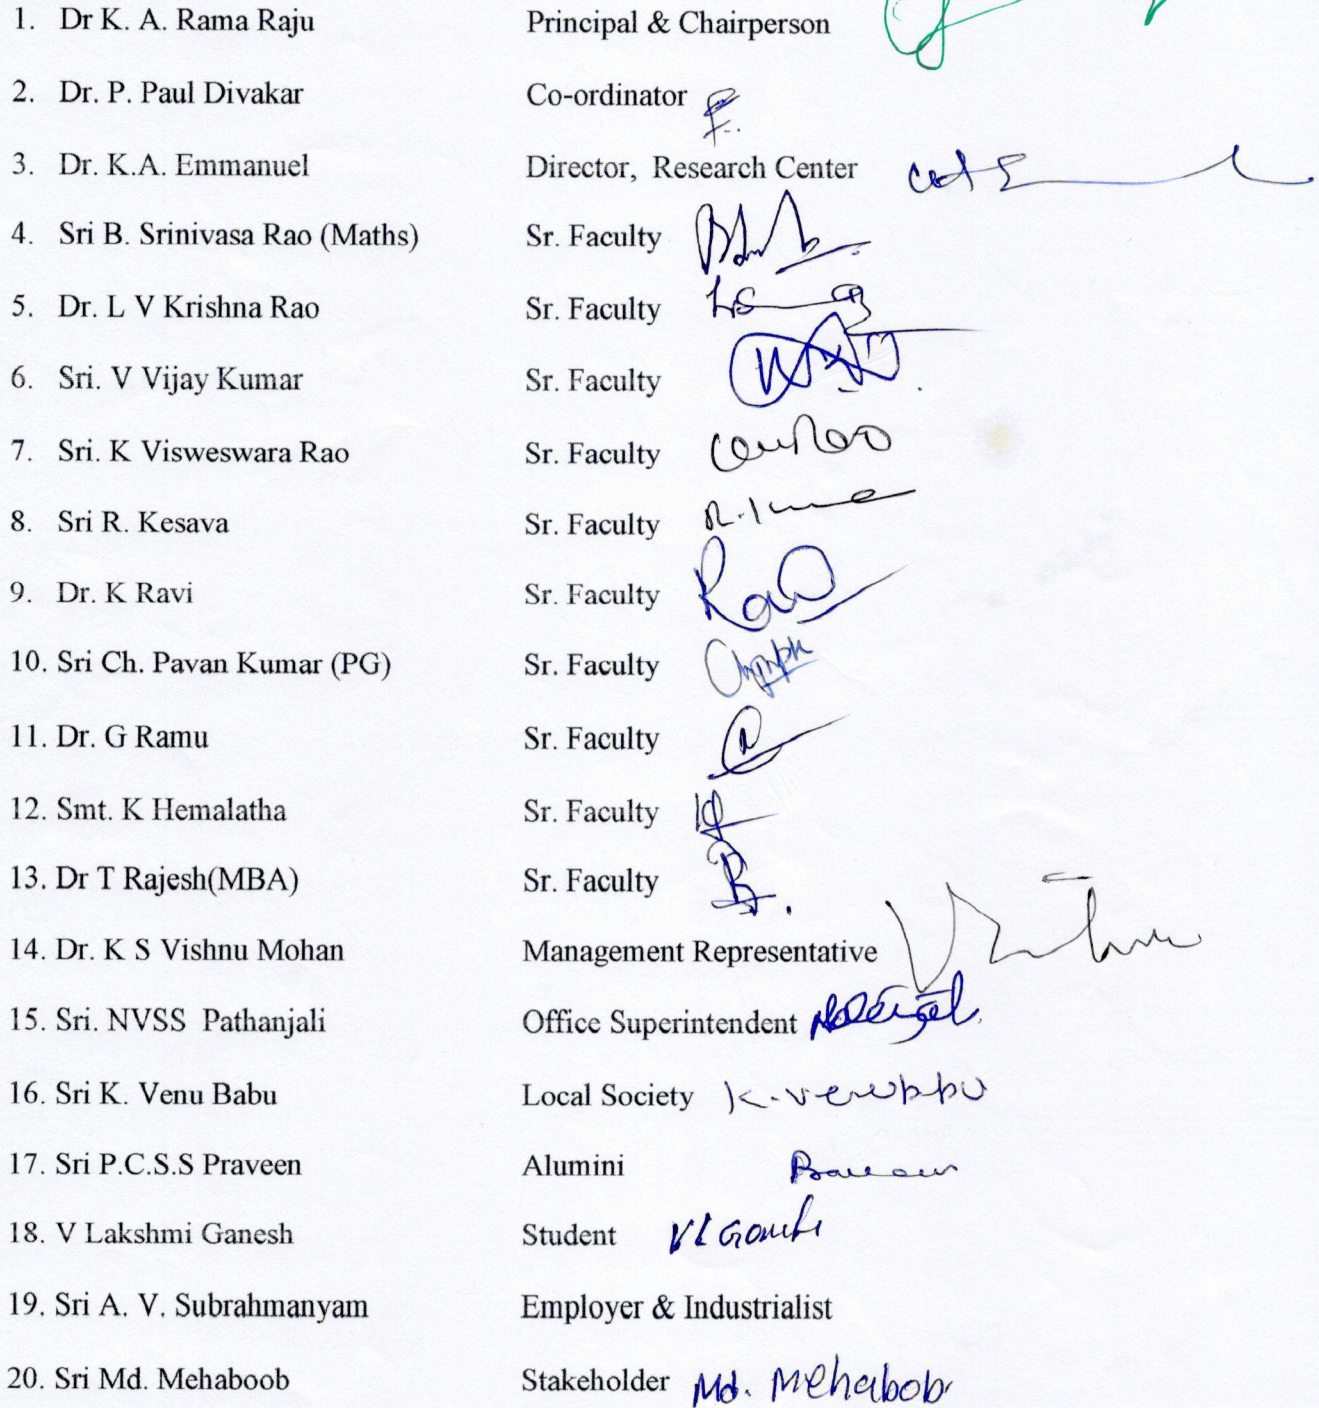 1. Dr K. A. Rama Raju Principal & Chairperson
2. Dr. P. Paul Divakar Co-ordinator
3. Dr. K.A. Emmanuel Director, Research Center
4. Sri B. Srinivasa Rao (Maths) Sr. Faculty
5. Dr. L V Krishna Rao Sr. Faculty
6. Sri. V Vijay Kumar Sr. Faculty
7. Sri. K Visweswara Rao Sr. Faculty
8. Sri R. Kesava Sr. Faculty
9. Dr. K Ravi Sr. Faculty
10. Sri Ch. Pavan Kumar (PG) Sr. Faculty
11. Dr. G Ramu Sr. Faculty
12. Smt. K Hemalatha Sr. Faculty
13. Dr T Rajesh(MBA) Sr. Faculty
14. Dr. K S Vishnu Mohan Management Representative
15. Sri. NVSS Pathanjali Office Superintendent
16. Sri K. Venu Babu Local Society
17. Sri P.C.S.S Praveen Alumini
18. V Lakshmi Ganesh Student
19. Sri A. V. Subrahmanyam Employer & Industrialist
20. Sri Md. Mehaboob Stakeholder Md. Mehabob